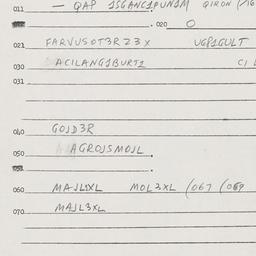 011 — QAP 1SGANC1PUN1M QIRON
020 O
021 FARVUSOT3R23X UGP1GULT
030 ACILANG1BURT1 CI
031
040 GOJD3R
050 AGROJSMOJL
060 MAJL1XL MOL3XL (067 (069
070 MAJL3XL